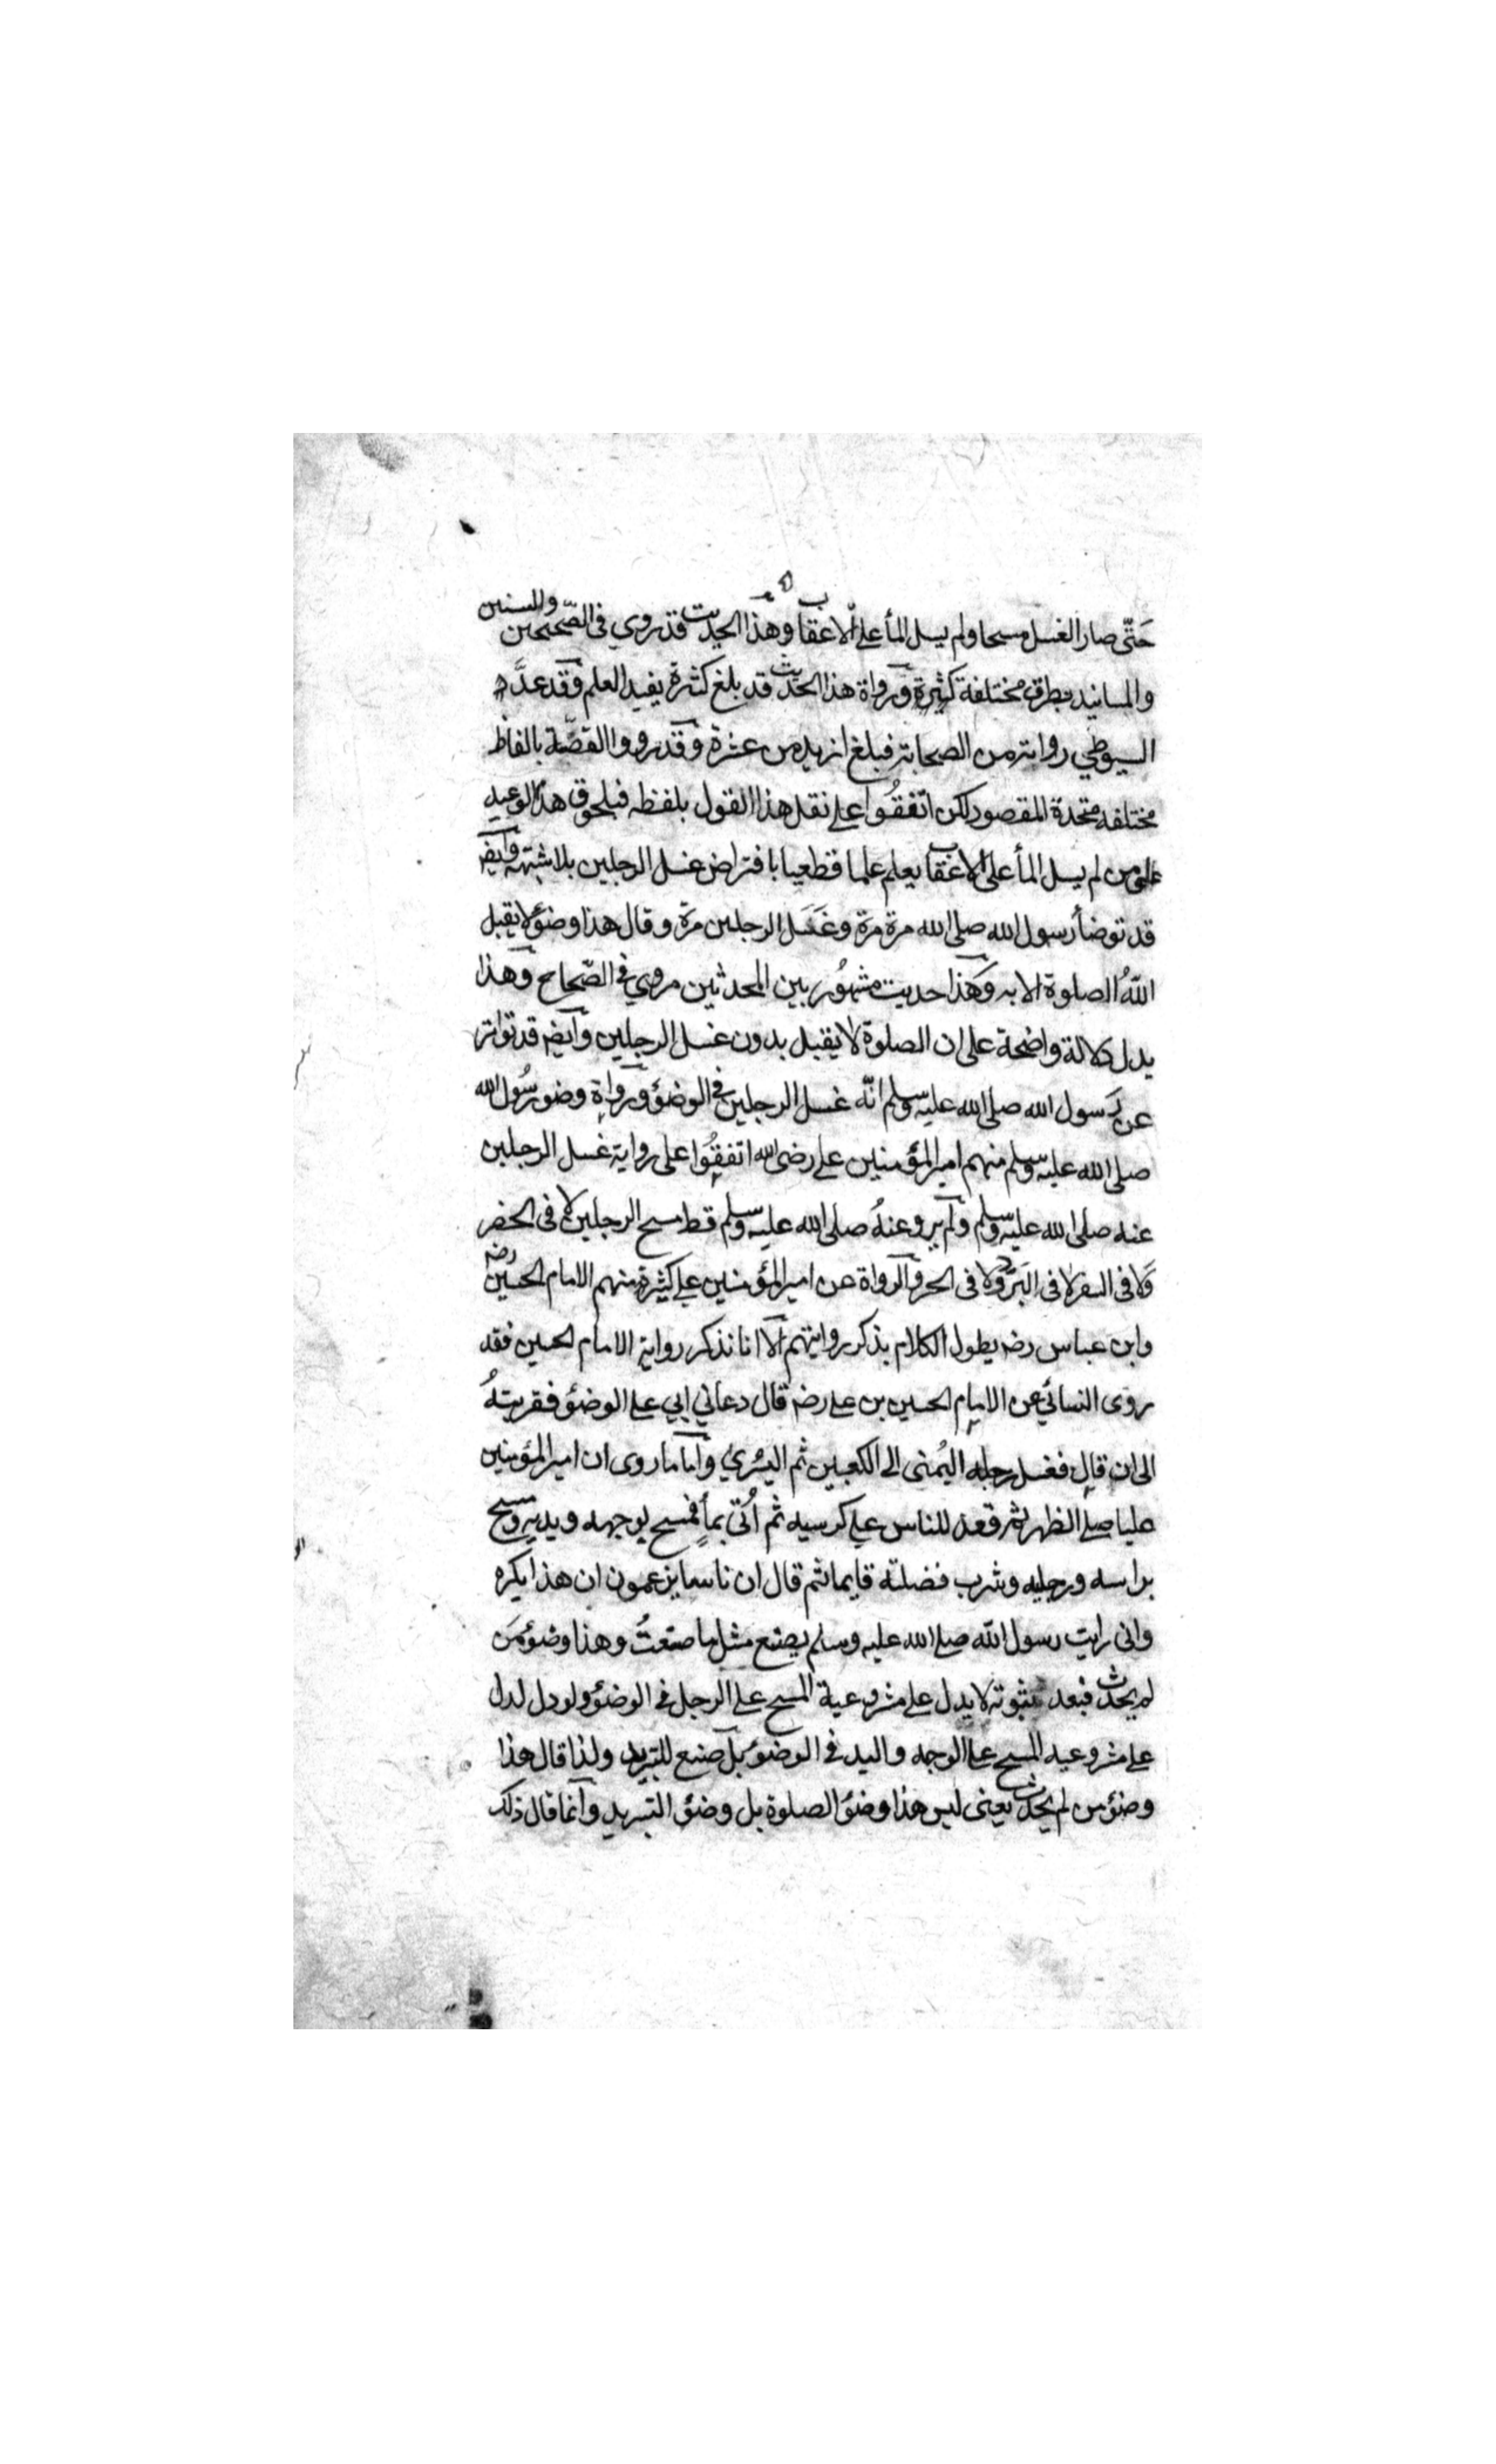 حَتّى صار الغسل مسحا ولم يسل المأ على الاعقاب وهذا الحديث قد روي في الصّحيحين والسنين
والمسانيد بطرق مختلفة كثيرة ورواة هذا الحديث قد بلغ كثرة يفيد العلم وقد عدَّه
السيوطي رواته من الصحابة فبلغ ازيد من عشرة وقد رووا القصّة بالفاظ
مختلفه متحدة المقصود لكن اتفقُوا على نقل هذا القول بلفظه فبلحوق هذا الوعيد
على من لم يسل المأ على الاعقاب يعلم علما قطعيا بافتراض غسل الرجلين بلا شبهة وايضا
قد توضأ رسول الله صلى الله مرة مرة وغَسَل الرجلين مرة وقال هذا وضؤ لا يقبل
اللهُ الصلوة الا به وهَذا حديث مشهُور بين المحدثين مروي في الصّحاح وهذا
يدل دلالة واضحة على ان الصلوة لا يقبل بدون غسل الرجلين وايضا قد تواتر
عن رَسول الله صلى الله عليه وسلم انّه غسل الرجلين في الوضؤ ورواة وضو رسُول الله
صلى الله عليه وسلم منهم امير المؤمنين على رضى الله اتفقُوا على رواية غسل الرجلين
عنه صلى الله عليه وسلم ولم يرو عنهُ صلى الله عليه وسلم قط مسح الرجلين لا فى الحضر
وَلا فى السفر لا فى البَرد ولا فى الحر والرواة عن امير المؤمنين على كثيرة منهم الامام الحسين رضه
وابن عباس رضه يطول الكلام بذكر روايتهم الا انا نذكر رواية الامام الحسين فقد
روى النسائي عن الامام الحسين بن على رضه قال دعاني ابي على الوضؤ فقربتهُ
الى ان قال فغسل رجله اليُمنى الى الكعبين ثم اليسري واما ما روى ان امير المؤمنين
عليا صلى الظهر ثم قعد للناس على كرسيه ثم اُتى بمأٍ فمسح بوجهه ويديه ومسح
براسه ورجليه وشرب فضلته قايما ثم قال ان ناسا يزعمون ان هذا يكره
وانى رايت رسول الله صلى الله عليه وسلم يصنع مثل ما صنعتُ وهذا وضؤ مَن
لم يحدث فبعد ثبوته لا يدل على مشروعية المسح على الرجل فى الوضؤ ولو دل لدل
على مشروعيه المسح على الوجه واليد فى الوضو بل صنع للتبريد ولذا قال هذا
وضؤ من لم يحدث يعنى ليس هذا وضؤ الصلوة بل وضؤ التبريد وانما قال ذلك